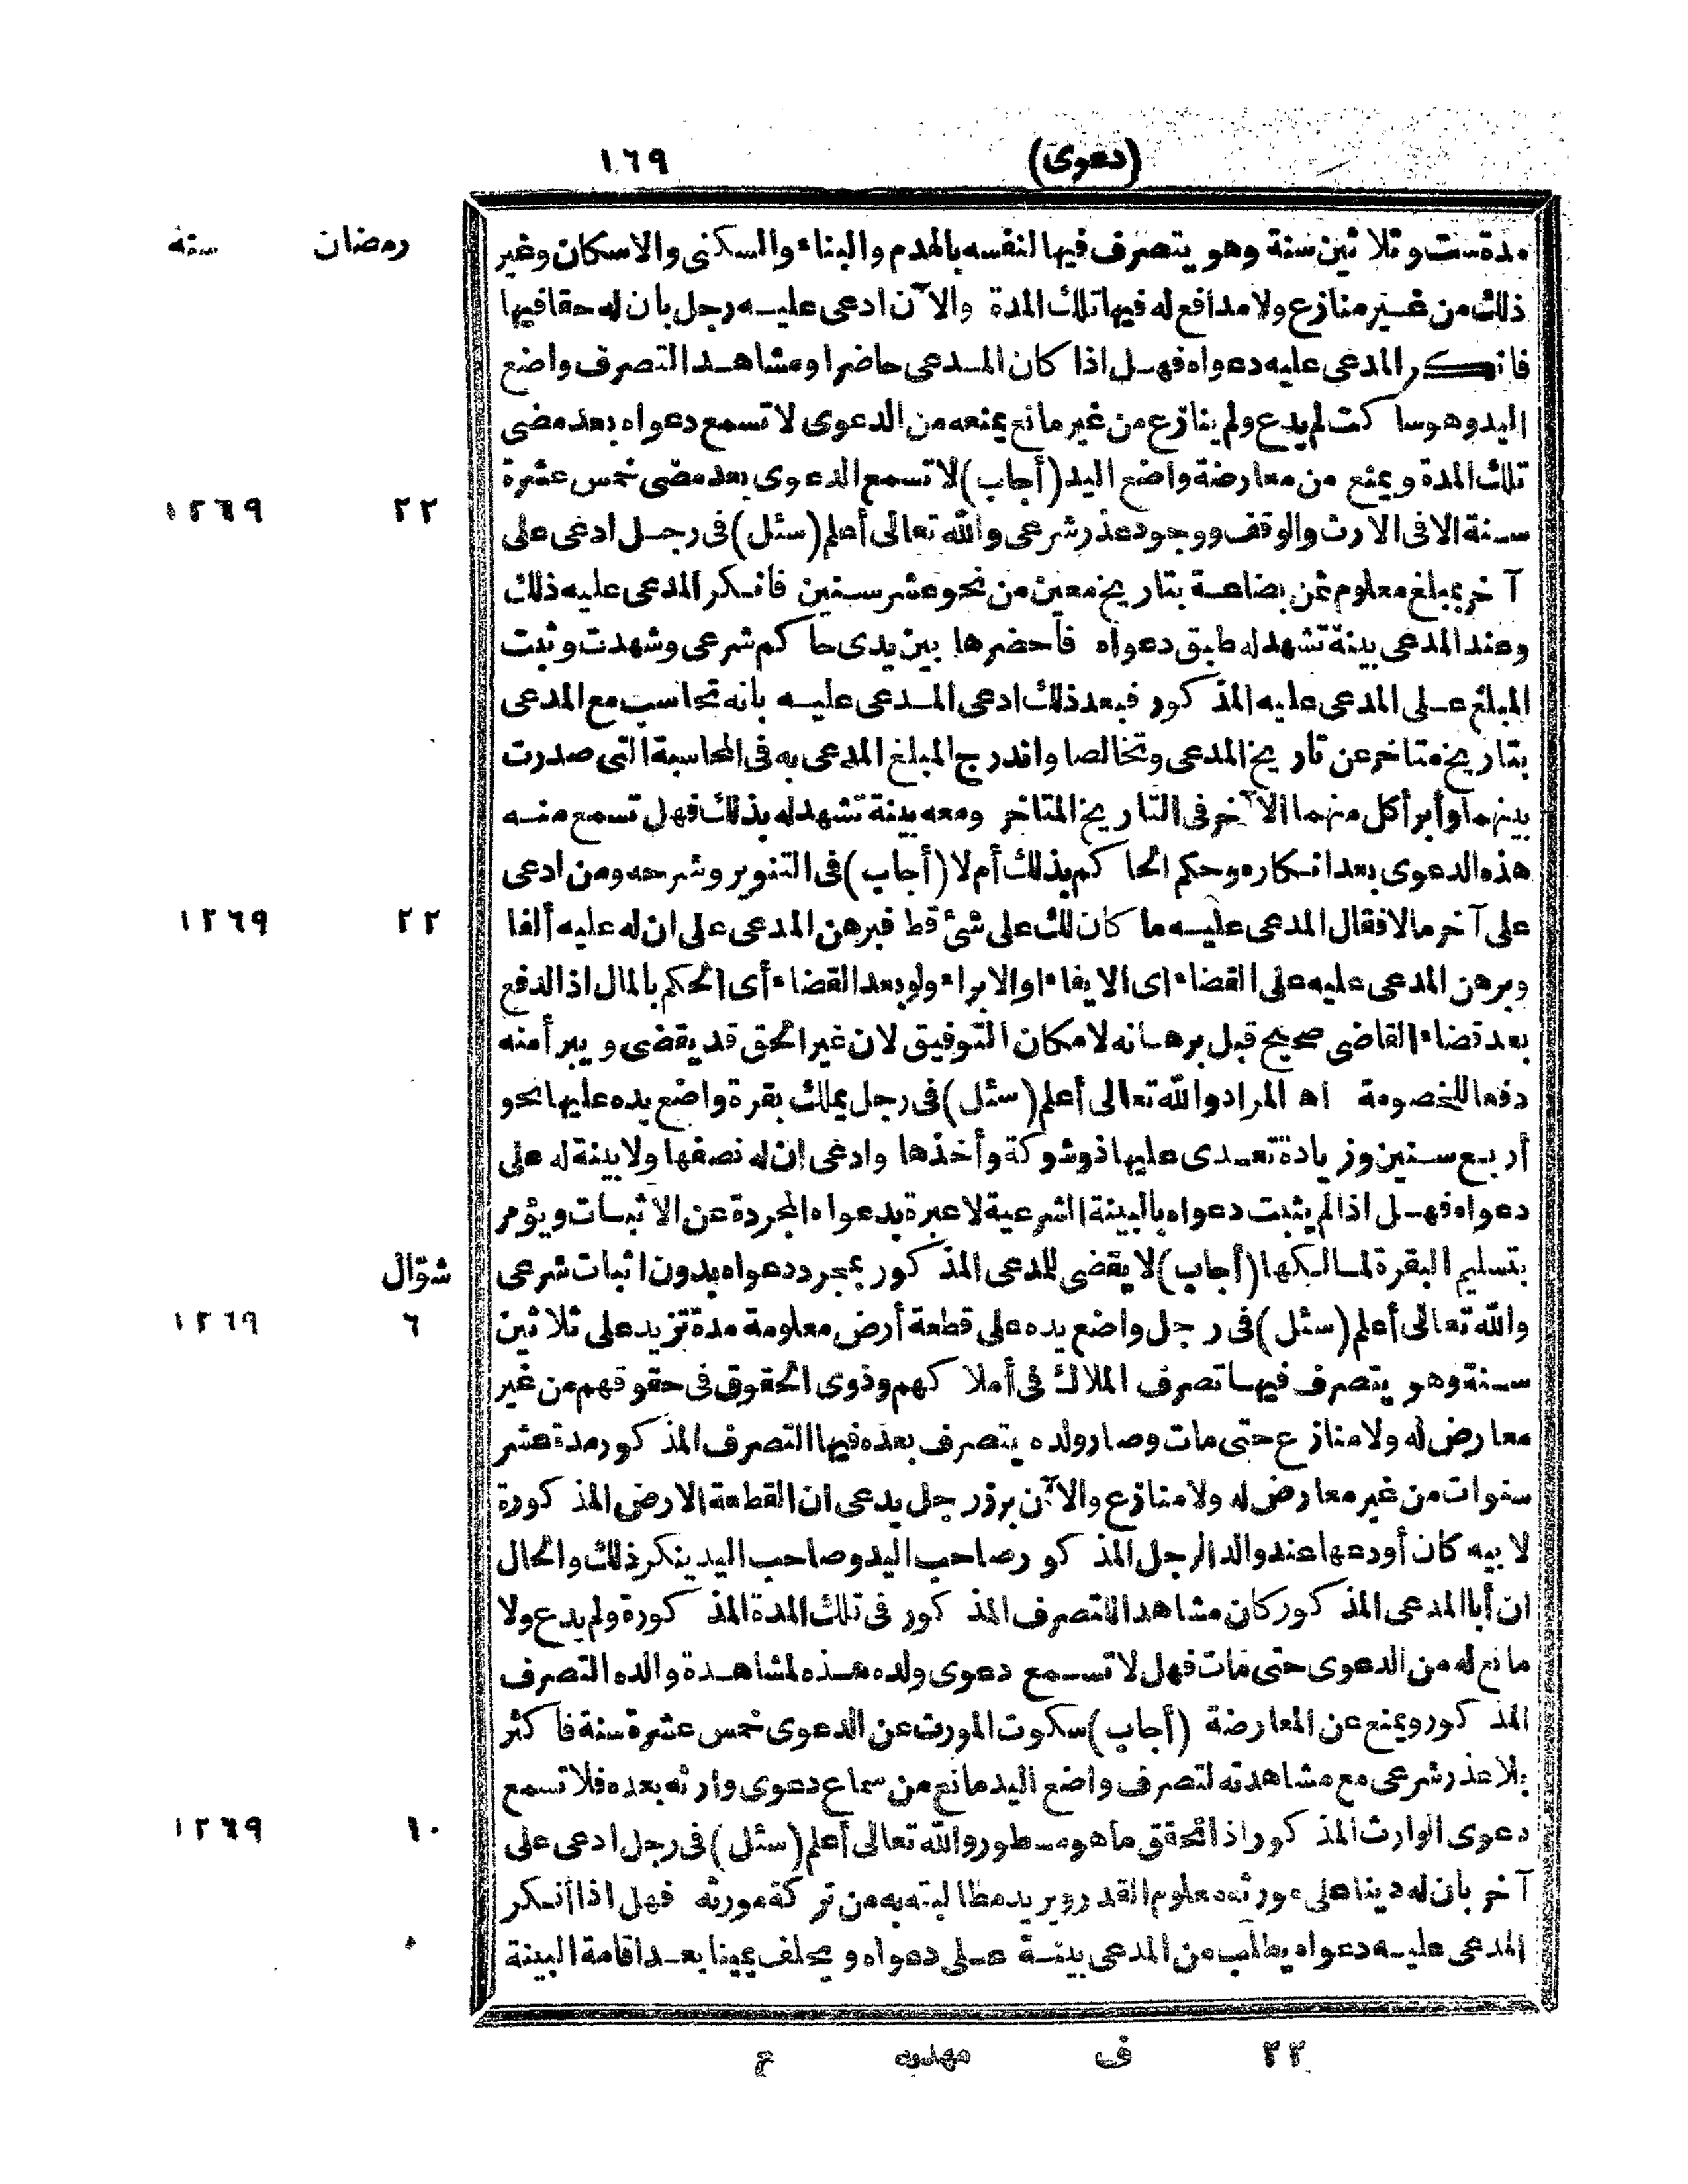 (دعوى) ١٦٩
رمضان سنة
مدة ست وثلاثين سنة وهو يتصرف فيها لنفسه بالهدم والبناء والسكنى والاسكان وغير
ذلك من غير منازع ولا مدافع له فيها تلك المدة والآن ادعى عليه رجل بان له حقا فيها
فانكر المدعى عليه دعواه فهل اذا كان المدعى حاضرا ومشاهدا لتصرف واضع
اليد وهو ساكت لم يدع ولم ينازع من غير مانع يمنعه من الدعوى لا تسمع دعواه بعد مضى
تلك المدة ويمنع من معارضة واضع اليد (أجاب) لا تسمع الدعوى بعد مضى خمس عشرة
٢٢ ١٢٦٩
سنة الا فى الارث والوقف ووجود عذر شرعى والله تعالى أعلم (سئل) فى رجل ادعى على
آخر بمبلغ معلوم ثمن بضاعة بتاريخ معين من نحو عشر سنين فانكر المدعى عليه ذلك
وعند المدعى بينة تشهد له طبق دعواه فأحضرها بين يدى حاكم شرعى وشهدت وثبت
المبلغ على المدعى عليه المذكور فبعد ذلك ادعى المدعى عليه بانه تحاسب مع المدعى
بتاريخ متاخر عن تاريخ المدعى وتخالصا واندرج المبلغ المدعى به فى المحاسبة التى صدرت
بينهما وأبرأ كل منهما الآخر فى التاريخ المتاخر ومعه بينة تشهد له بذلك فهل تسمع منه
هذه الدعوى بعد انكاره وحكم الحاكم بذلك أم لا (أجاب) فى التنوير وشرحه ومن ادعى
على آخر مالا فقال المدعى عليه ما كان لك على شئ قط فبرهن المدعى على ان له عليه ألفا
٢٢ ١٢٦٩
وبرهن المدعى عليه على القضاء اى الايفاء او الابراء ولو بعد القضاء أى الحكم بالمال اذ الدفع
بعد قضاء القاضى صحيح قبل برهانه لامكان التوفيق لان غير الحق قد يقضى ويبرأ منه
دفعا للخصومة اه المراد والله تعالى أعلم (سئل) فى رجل يملك بقرة واضع يده عليها نحو
أربع سنين وزيادة تعدى عليها ذو شوكة وأخذها وادعى ان له نصفها ولا بينة له على
دعواه فهل اذا لم يثبت دعواه بالبينة الشرعية لا عبرة بدعواه المجردة عن الاثبات ويؤمر
بتسليم البقرة لمالكها (أجاب) لا يقضى للمدعى المذكور بمجرد دعواه بدون اثبات شرعى
شوّال
والله تعالى أعلم (سئل) فى رجل واضع يده على قطعة أرض معلومة مدة تزيد على ثلاثين
٦ ١٢٦٩
سنة وهو يتصرف فيها تصرف الملاك فى أملاكهم وذوى الحقوق فى حقوقهم من غير
معارض له ولا منازع حتى مات وصار ولده يتصرف بعده فيها التصرف المذكور مدة عشر
سنوات من غير معارض له ولا منازع والآن برز رجل يدعى ان القطعة الارض المذكورة
لابيه كان أودعها عند والد الرجل المذكور صاحب اليد وصاحب اليد ينكر ذلك والحال
ان أبا المدعى المذكور كان مشاهدا للتصرف المذكور فى تلك المدة المذكورة ولم يدع ولا
مانع له من الدعوى حتى مات فهل لا تسمع دعوى ولده هذه لمشاهدة والده التصرف
المذكور ويمنع عن المعارضة (أجاب) سكوت المورث عن الدعوى خمس عشرة سنة فاكثر
بلا عذر شرعى مع مشاهدته لتصرف واضع اليد مانع من سماع دعوى وارثه بعده فلا تسمع
دعوى الوارث المذكور اذا تحقق ما هو مسطور والله تعالى أعلم (سئل) فى رجل ادعى على
١٠ ١٢٦٩
آخر بان له دينا على مورثه معلوم القدر ويريد مطالبته به من تركة مورثه فهل اذا أنكر
المدعى عليه دعواه يطلب من المدعى بينة على دعواه ويحلف يمينا بعد اقامة البينة
٢٢ ف مهديه ع